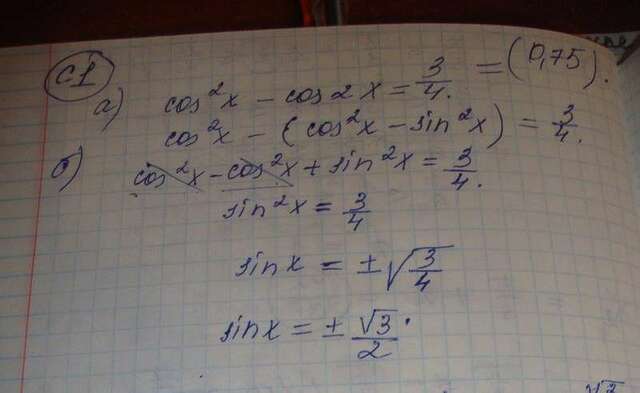 C1
а) cos²x - cos2x = 3/4. = (0,75).
cos²x - (cos²x - sin²x) = 3/4.
б) cos²x - cos²x + sin²x = 3/4.
sin²x = 3/4
sinx = ±√(3/4)
sinx = ± √3/2.